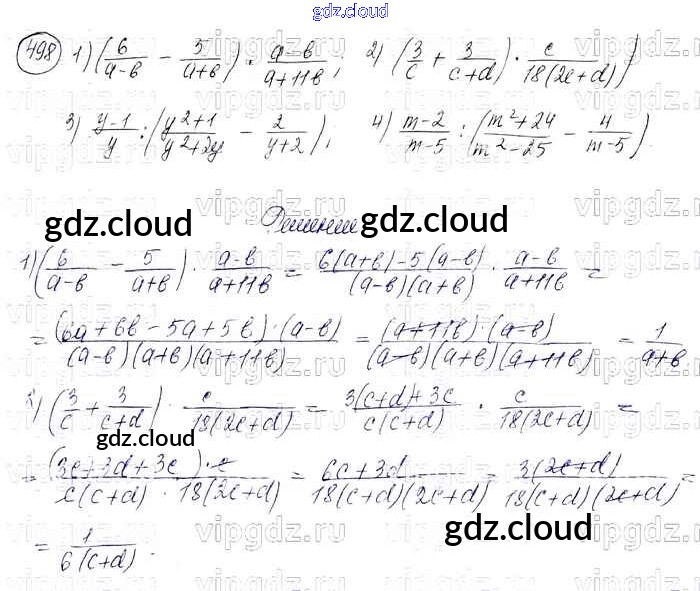 gdz.cloud
498 1) (6/(a-b) - 5/(a+b)) · (a-b)/(a+11b); 2) (3/c + 3/(c+d)) · c/(18(2c+d));
3) (y-1)/y : ((y²+1)/(y²+2y) - 2/(y+2)); 4) (m-2)/(m-5) : ((m²+24)/(m²-25) - 4/(m-5)).
Решение
gdz.cloud gdz.cloud
1) (6/(a-b) - 5/(a+b)) · (a-b)/(a+11b) = (6(a+b)-5(a-b))/((a-b)(a+b)) · (a-b)/(a+11b) =
= ((6a+6b-5a+5b)·(a-b))/((a-b)(a+b)(a+11b)) = ((a+11b)·(a-b))/((a-b)(a+b)(a+11b)) = 1/(a+b)
(3/c + 3/(c+d)) · c/(18(2c+d)) = (3(c+d)+3c)/(c(c+d)) · c/(18(2c+d)) =
gdz.cloud
= ((3c+3d+3c)·c)/(c(c+d)·18(2c+d)) = (6c+3d)/(18(c+d)(2c+d)) = (3(2c+d))/(18(c+d)(2c+d)) =
gdz.cloud
= 1/(6(c+d)).
vipgdz.ru